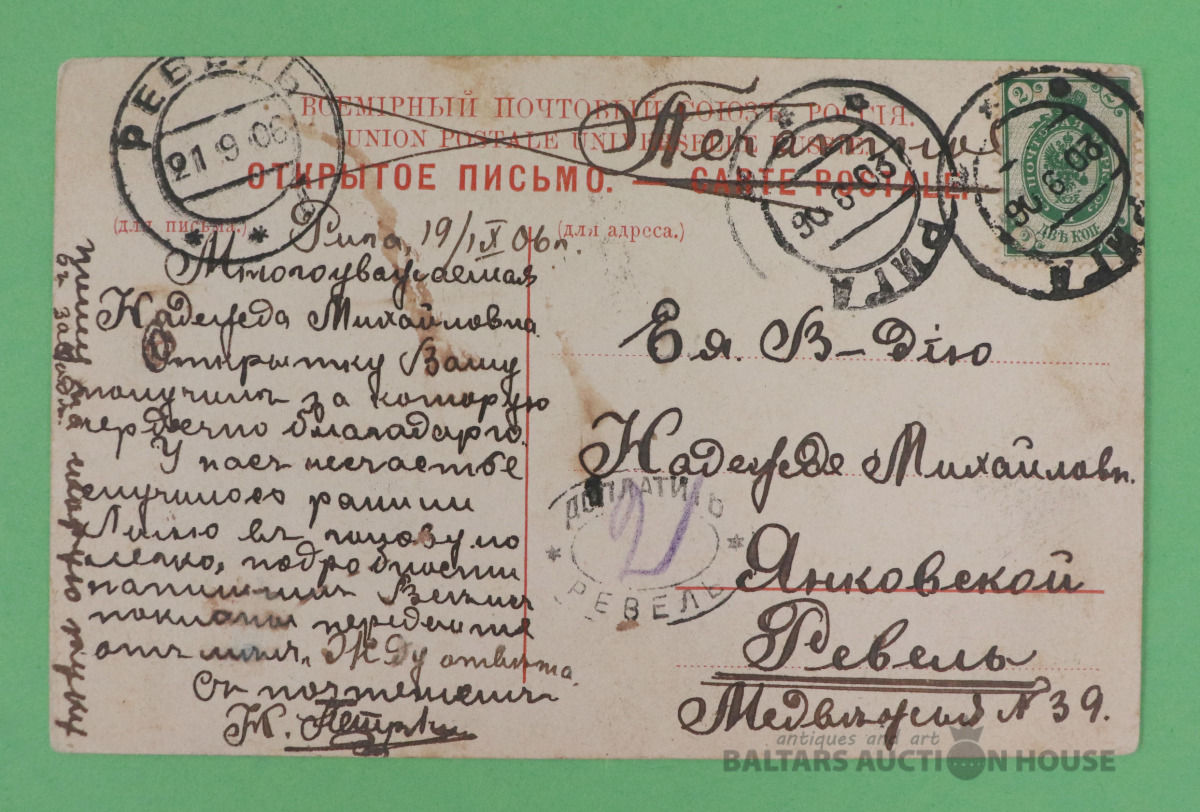 ВСЕМІРНЫЙ ПОЧТОВЫЙ СОЮЗЪ. РОССІЯ.
UNION POSTALE UNIVERSELLE RUSSIE.
ОТКРЫТОЕ ПИСЬМО. — CARTE POSTALE.
(для письма.)
(для адреса.)
РЕВЕЛЬ
21 9 06
РИГА
20 9 06
РИГА
20 9 06
2
ДВѢ КОП.
Рига, 19/IX 06 г.
Многоуважаемая
Надежда Михайловна
Открытку Вашу
получилъ за которую
сердечно благодарю.
У насъ несчастье
случилось ранили
въ голову но
легко, подробности
поклоны передайте
отъ меня. Жду отвѣта.
Съ почтеніемъ
Ея В-дію
Надежде Михайловн.
Янковской
Ревель
Медвѣжья N 39.
ДОПЛАТИТЬ
РЕВЕЛЬ
antiques and art
BALTARS AUCTION HOUSE